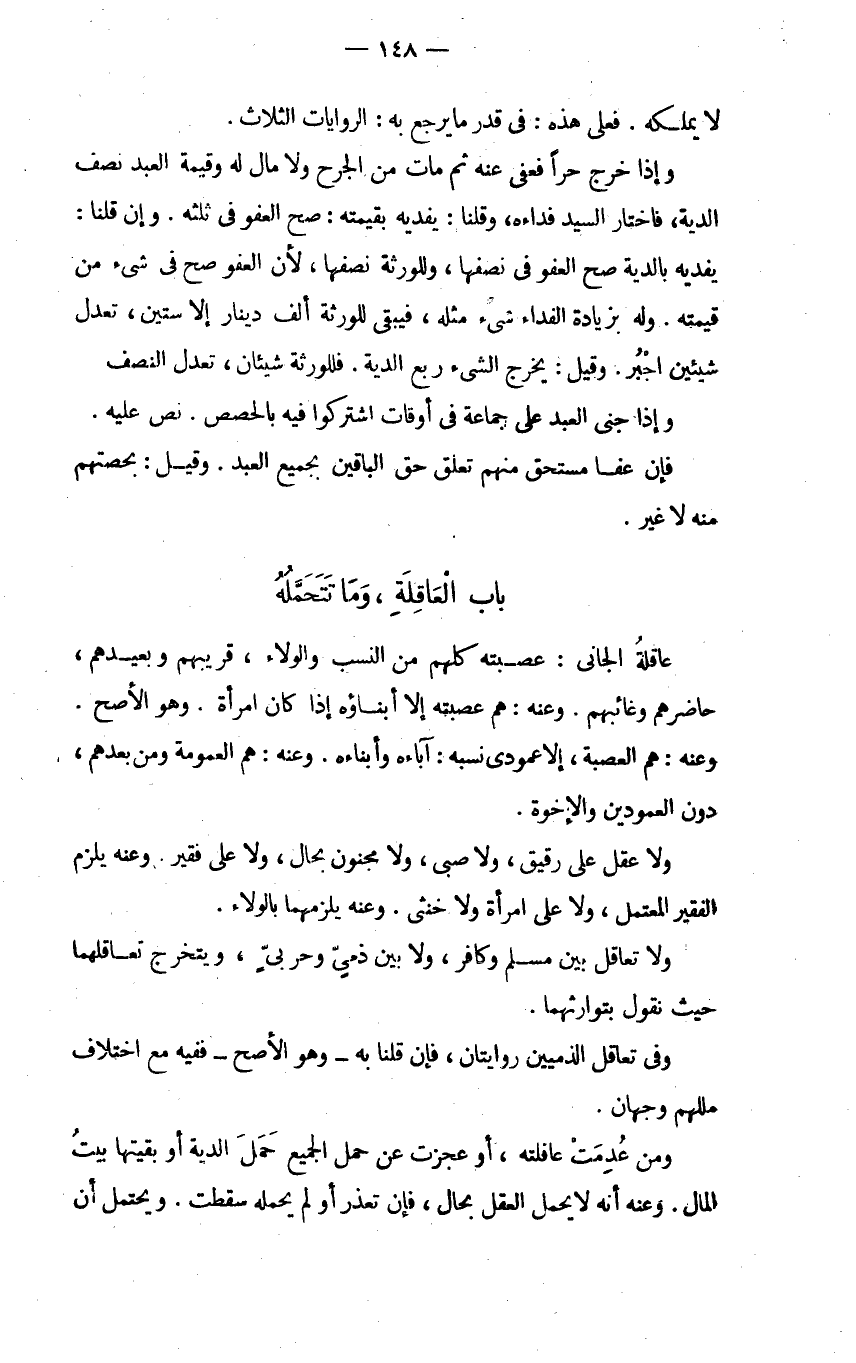 — ١٤٨ —
لا يملـكه . فعلى هذه : فى قدر ما يرجع به : الروايات الثلاث .
وإذا خرج حراً فعفى عنه ثم مات من الجرح ولا مال له وقيمة العبد نصف
الدية، فاختار السيد فداءه، وقلنا : يفديه بقيمته : صح العفو فى ثلثه . وإن قلنا :
يفديه بالدية صح العفو فى نصفها ، وللورثة نصفها ، لأن العفو صح فى شىء من
قيمته . وله بزيادة الفداء شىءٌ مثله ، فيبقى للورثة ألف دينار إلا ستين ، تعدل
شيئين اجْبُر . وقيل : يخرج الشىء ربع الدية . فللورثة شيئان ، تعدل النصف
وإذا جنى العبد على جماعة فى أوقات اشتركوا فيه بالحصص . نص عليه .
فإن عفـا مستحق منهم تعلق حق الباقين بجميع العبد . وقيـل : بحصتهم
منه لا غير .
باب الْعَاقِلَةِ ، وَمَا تَتَحَمَّلُهُ
عاقلةُ الجانى : عصـبته كلهم من النسب والولاء ، قريبهم وبعيـدهم ،
حاضرهم وغائبهم . وعنه : هم عصبته إلا أبنـاؤه إذا كان امرأة . وهو الأصح .
وعنه : هم العصبة ، إلا عمودى نسبه : آباءه وأبناءه . وعنه : هم العمومة ومن بعدهم ،
دون العمودين والإخوة .
ولا عقل على رقيق ، ولا صبى ، ولا مجنون بحال ، ولا على فقير . وعنه يلزم
الفقير المعتمل ، ولا على امرأة ولا خنثى . وعنه يلزمهما بالولاء .
ولا تعاقل بين مسـلم وكافر ، ولا بين ذمىّ وحربىّ ٍ ، ويتخرج تعـاقلهما
حيث نقول بتوارثهما .
وفى تعاقل الذميين روايتان ، فإن قلنا به – وهو الأصح – ففيه مع اختلاف
مللهم وجهان .
ومن عُدِمَتْ عاقلته ، أو عجزت عن حمل الجميع حَمَلَ الدية أو بقيتها بيتُ
المال . وعنه أنه لا يحمل العقل بحال ، فإن تعذر أو لم يحمله سقطت . ويحتمل أن